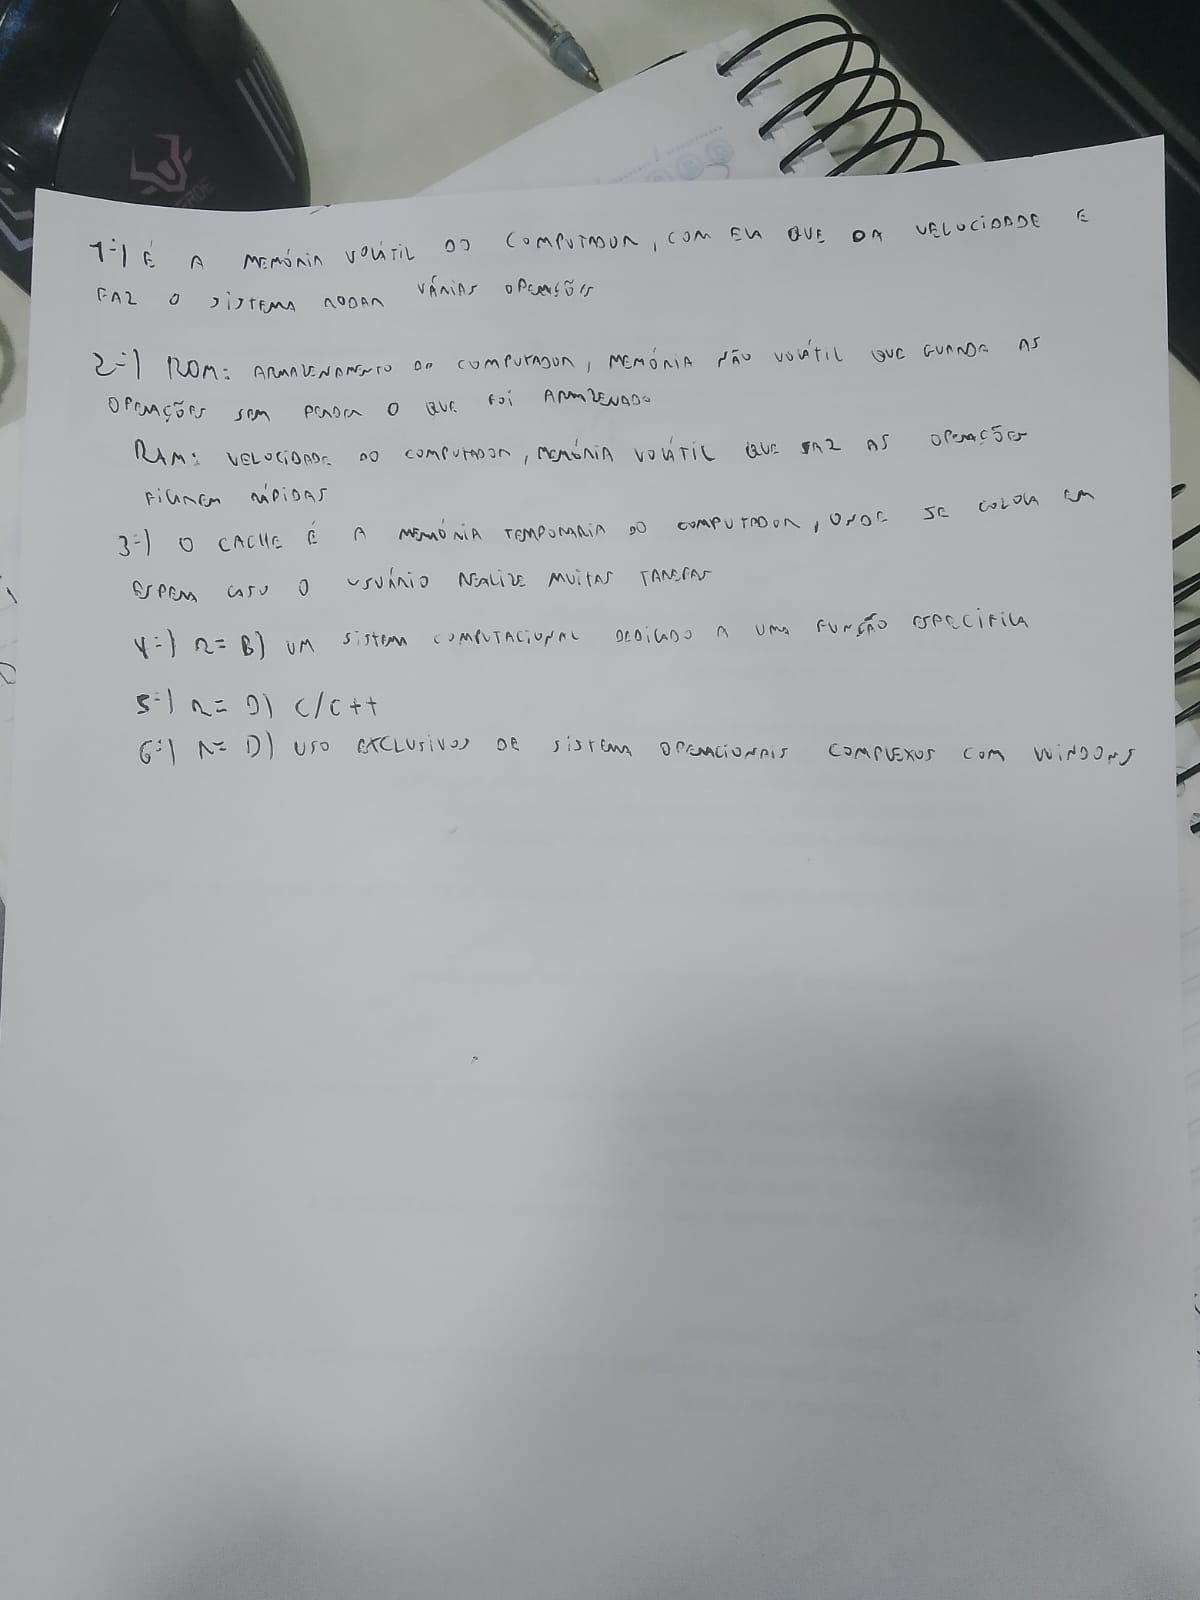 1-) É A MEMÓRIA VOLÁTIL DO COMPUTADOR, COM ELA QUE DA VELOCIDADE E
FAZ O SISTEMA RODAR VÁRIAS OPERAÇÕES
2-) ROM: ARMAZENAMENTO DO COMPUTADOR, MEMÓRIA NÃO VOLÁTIL QUE GUARDA AS
OPERAÇÕES SEM PERDER O QUE FOI ARMAZENADO
RAM: VELOCIDADE DO COMPUTADOR, MEMÓRIA VOLÁTIL QUE FAZ AS OPERAÇÕES
FICAREM RÁPIDAS
3-) O CACHE É A MEMÓRIA TEMPORARIA DO COMPUTADOR, ONDE SE COLOCA EM
ESPERA CASO O USUÁRIO REALIZE MUITAS TAREFAS
4-) R= B) UM SISTEMA COMPUTACIONAL DEDICADO A UMA FUNÇÃO ESPECIFICA
5-) R= D) C/C++
6-) R= D) USO EXCLUSIVOS DE SISTEMA OPERACIONAIS COMPLEXOS COM WINDOWS